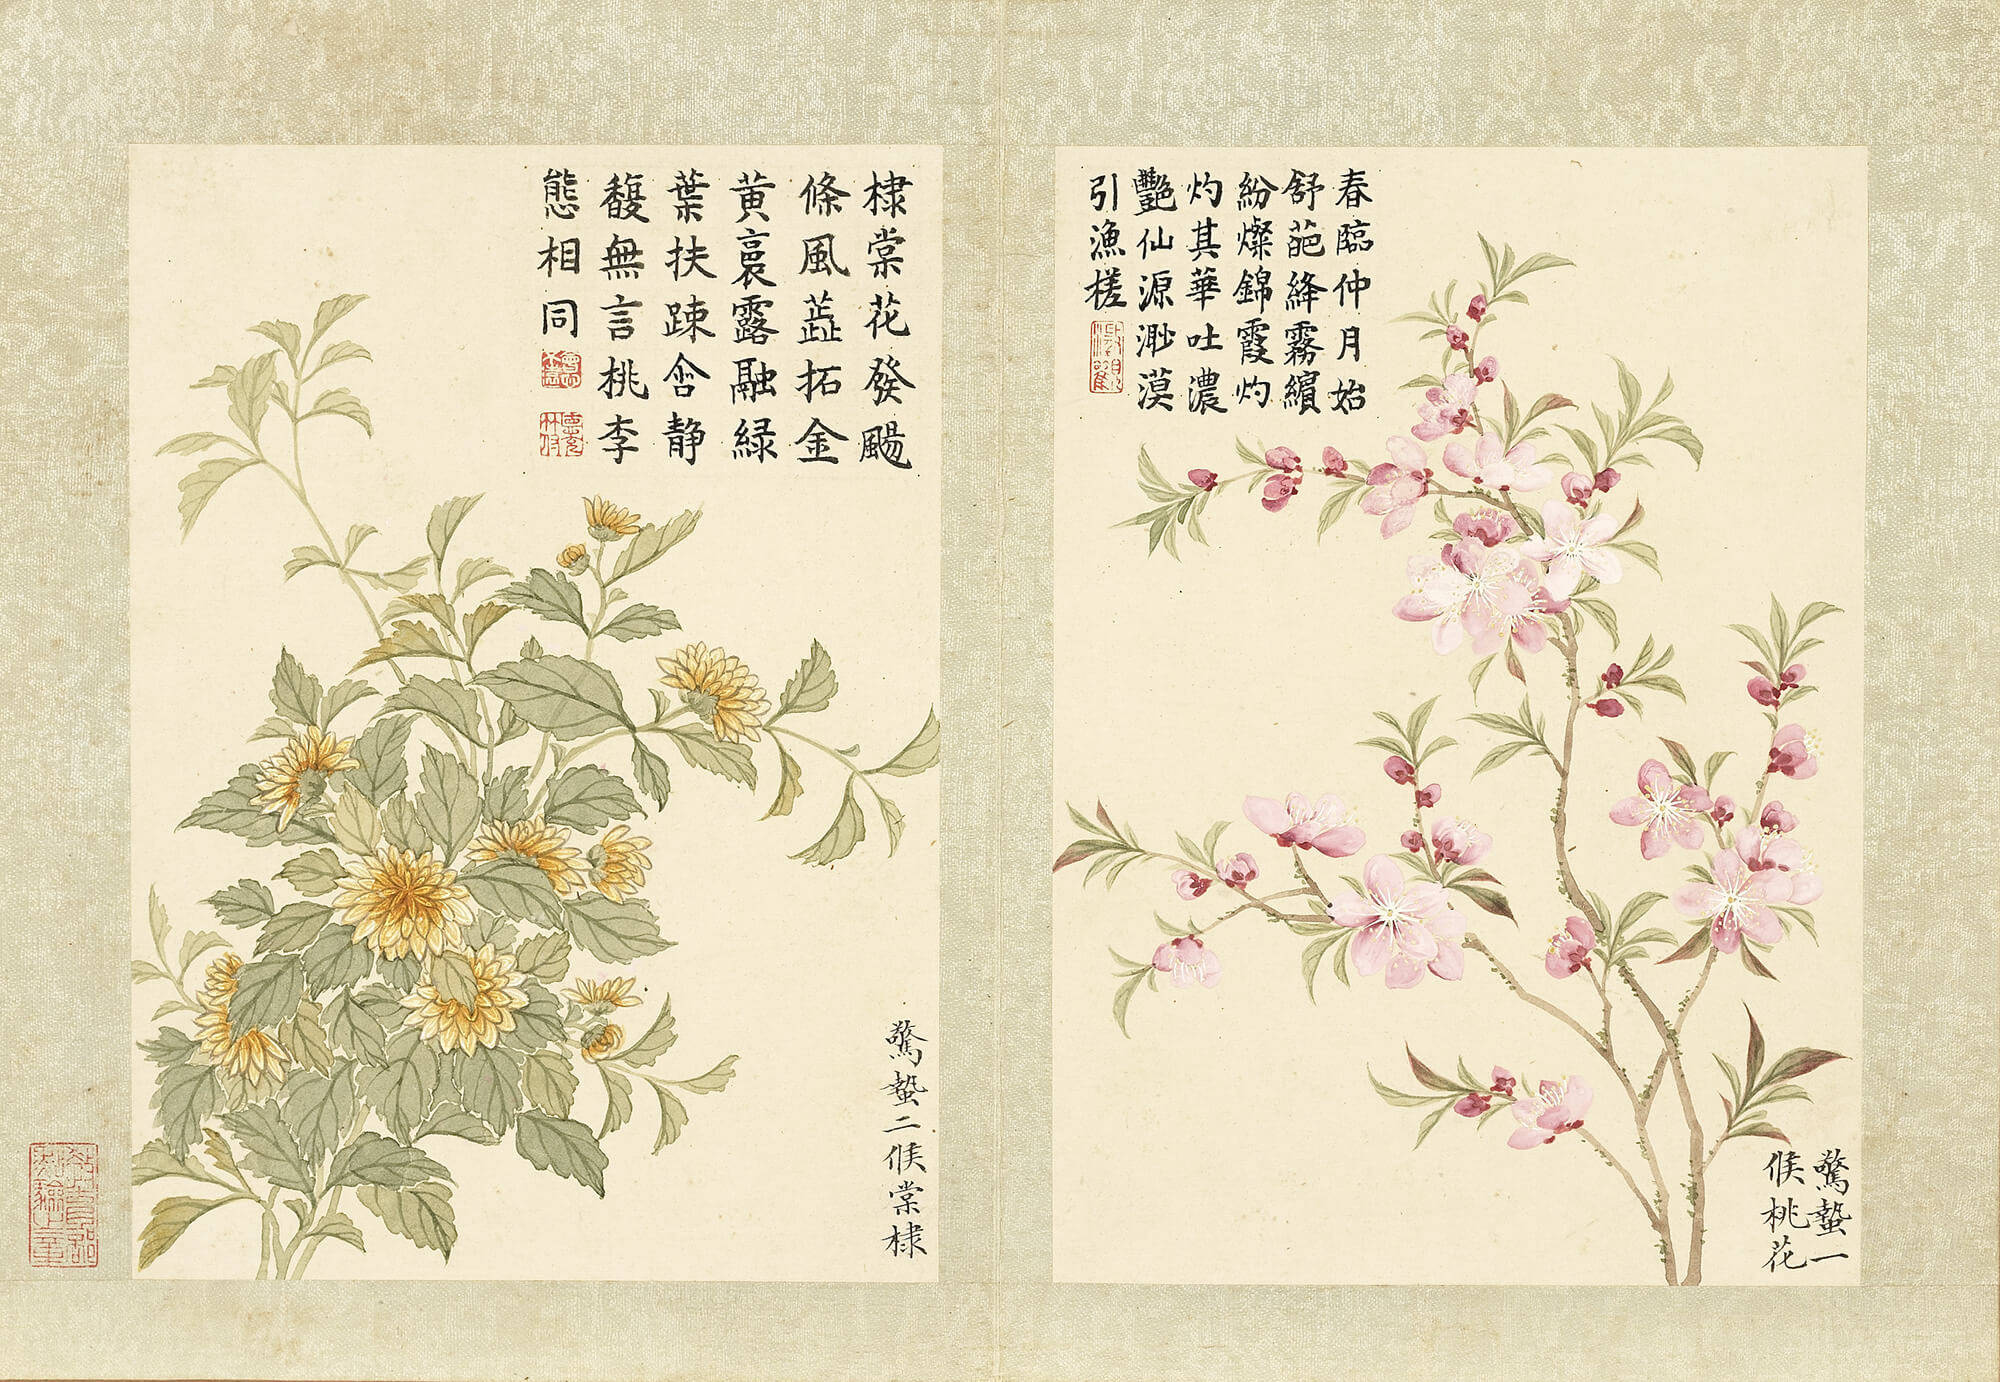 春臨仲月始
舒葩絳霧繽
紛燦錦霞灼
灼其華吐濃
艷仙源渺漠
引漁槎
驚蟄一
候桃花
棣棠花發颺
條風蕋拓金
黄裛露融緑
葉扶疎含静
馥無言桃李
態相同
驚蟄二候棠棣